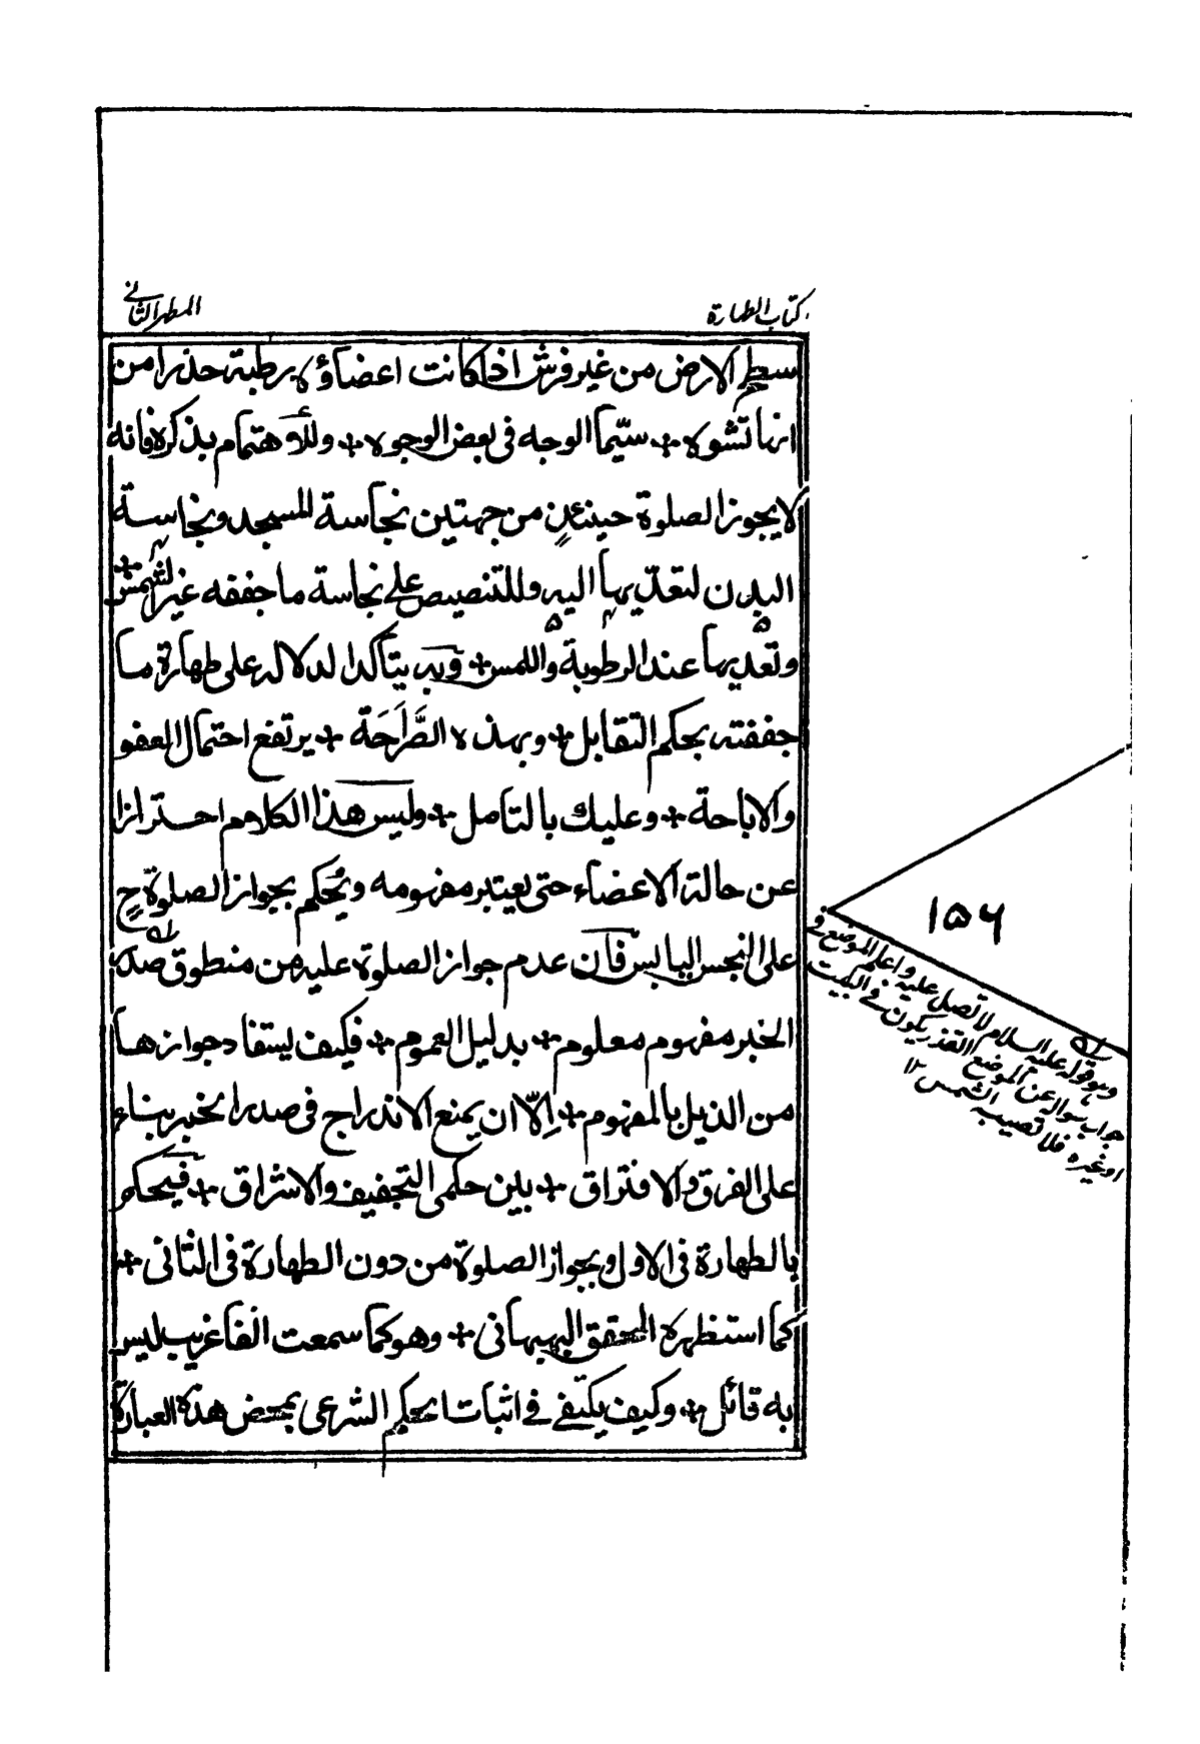 كتاب الطهارة
المطهر الثاني
سطح الارض من غير فرش اذا كانت اعضاؤه رطبة حذرا من
انها تشوه + سيّما الوجه فى بعض الوجوه + وللاهتمام بذكره فانه
لا يجوز الصلوة حينئذٍ من جهتين نجاسة المسجد ونجاسة
البدن لتعدّيها اليه وللتنصيص على نجاسة ما جففه غير الشمس +
وتعديها عند الرطوبة واللمس + وبه يتأكد الدلالة على طهارة ما
جففته بحكم التقابل + وبهذه الصَّرَاحَة + يرتفع احتمال العفو
والاباحة + وعليك بالتامل + وليس هذا الكلام احترازا
عن حالة الاعضاء حتى يعتبر مفهومه ويُحكم بجواز الصلوة ح
على النجس اليابس فان عدم جواز الصلوة عليه من منطوق صدر
الخبر مفهوم معلوم + بدليل العموم + فكيف يستفاد جوازها
من الذيل بالمفهوم + اِلّا ان يمنع الاندراج فى صدر الخبر بناء
على الفرق والافتراق + بين حكمى التجفيف والاشراق + فيحكم
بالطهارة فى الاول وبجواز الصلوة من دون الطهارة فى الثانى +
كما استظهره المحقق البهبهانى + وهو كما سمعت انفا غريب ليس
به قائل + وكيف يكتفى فى اثبات الحكم الشرعى بمحض هذه العبارة
١٥٦
وهو قوله عليه السلام لا تصل عليه واعلم الموضع فى
جواب سواله عن الموضع القذر يكون فى البيت
او غيره فلا تصيبه الشمس ١٢